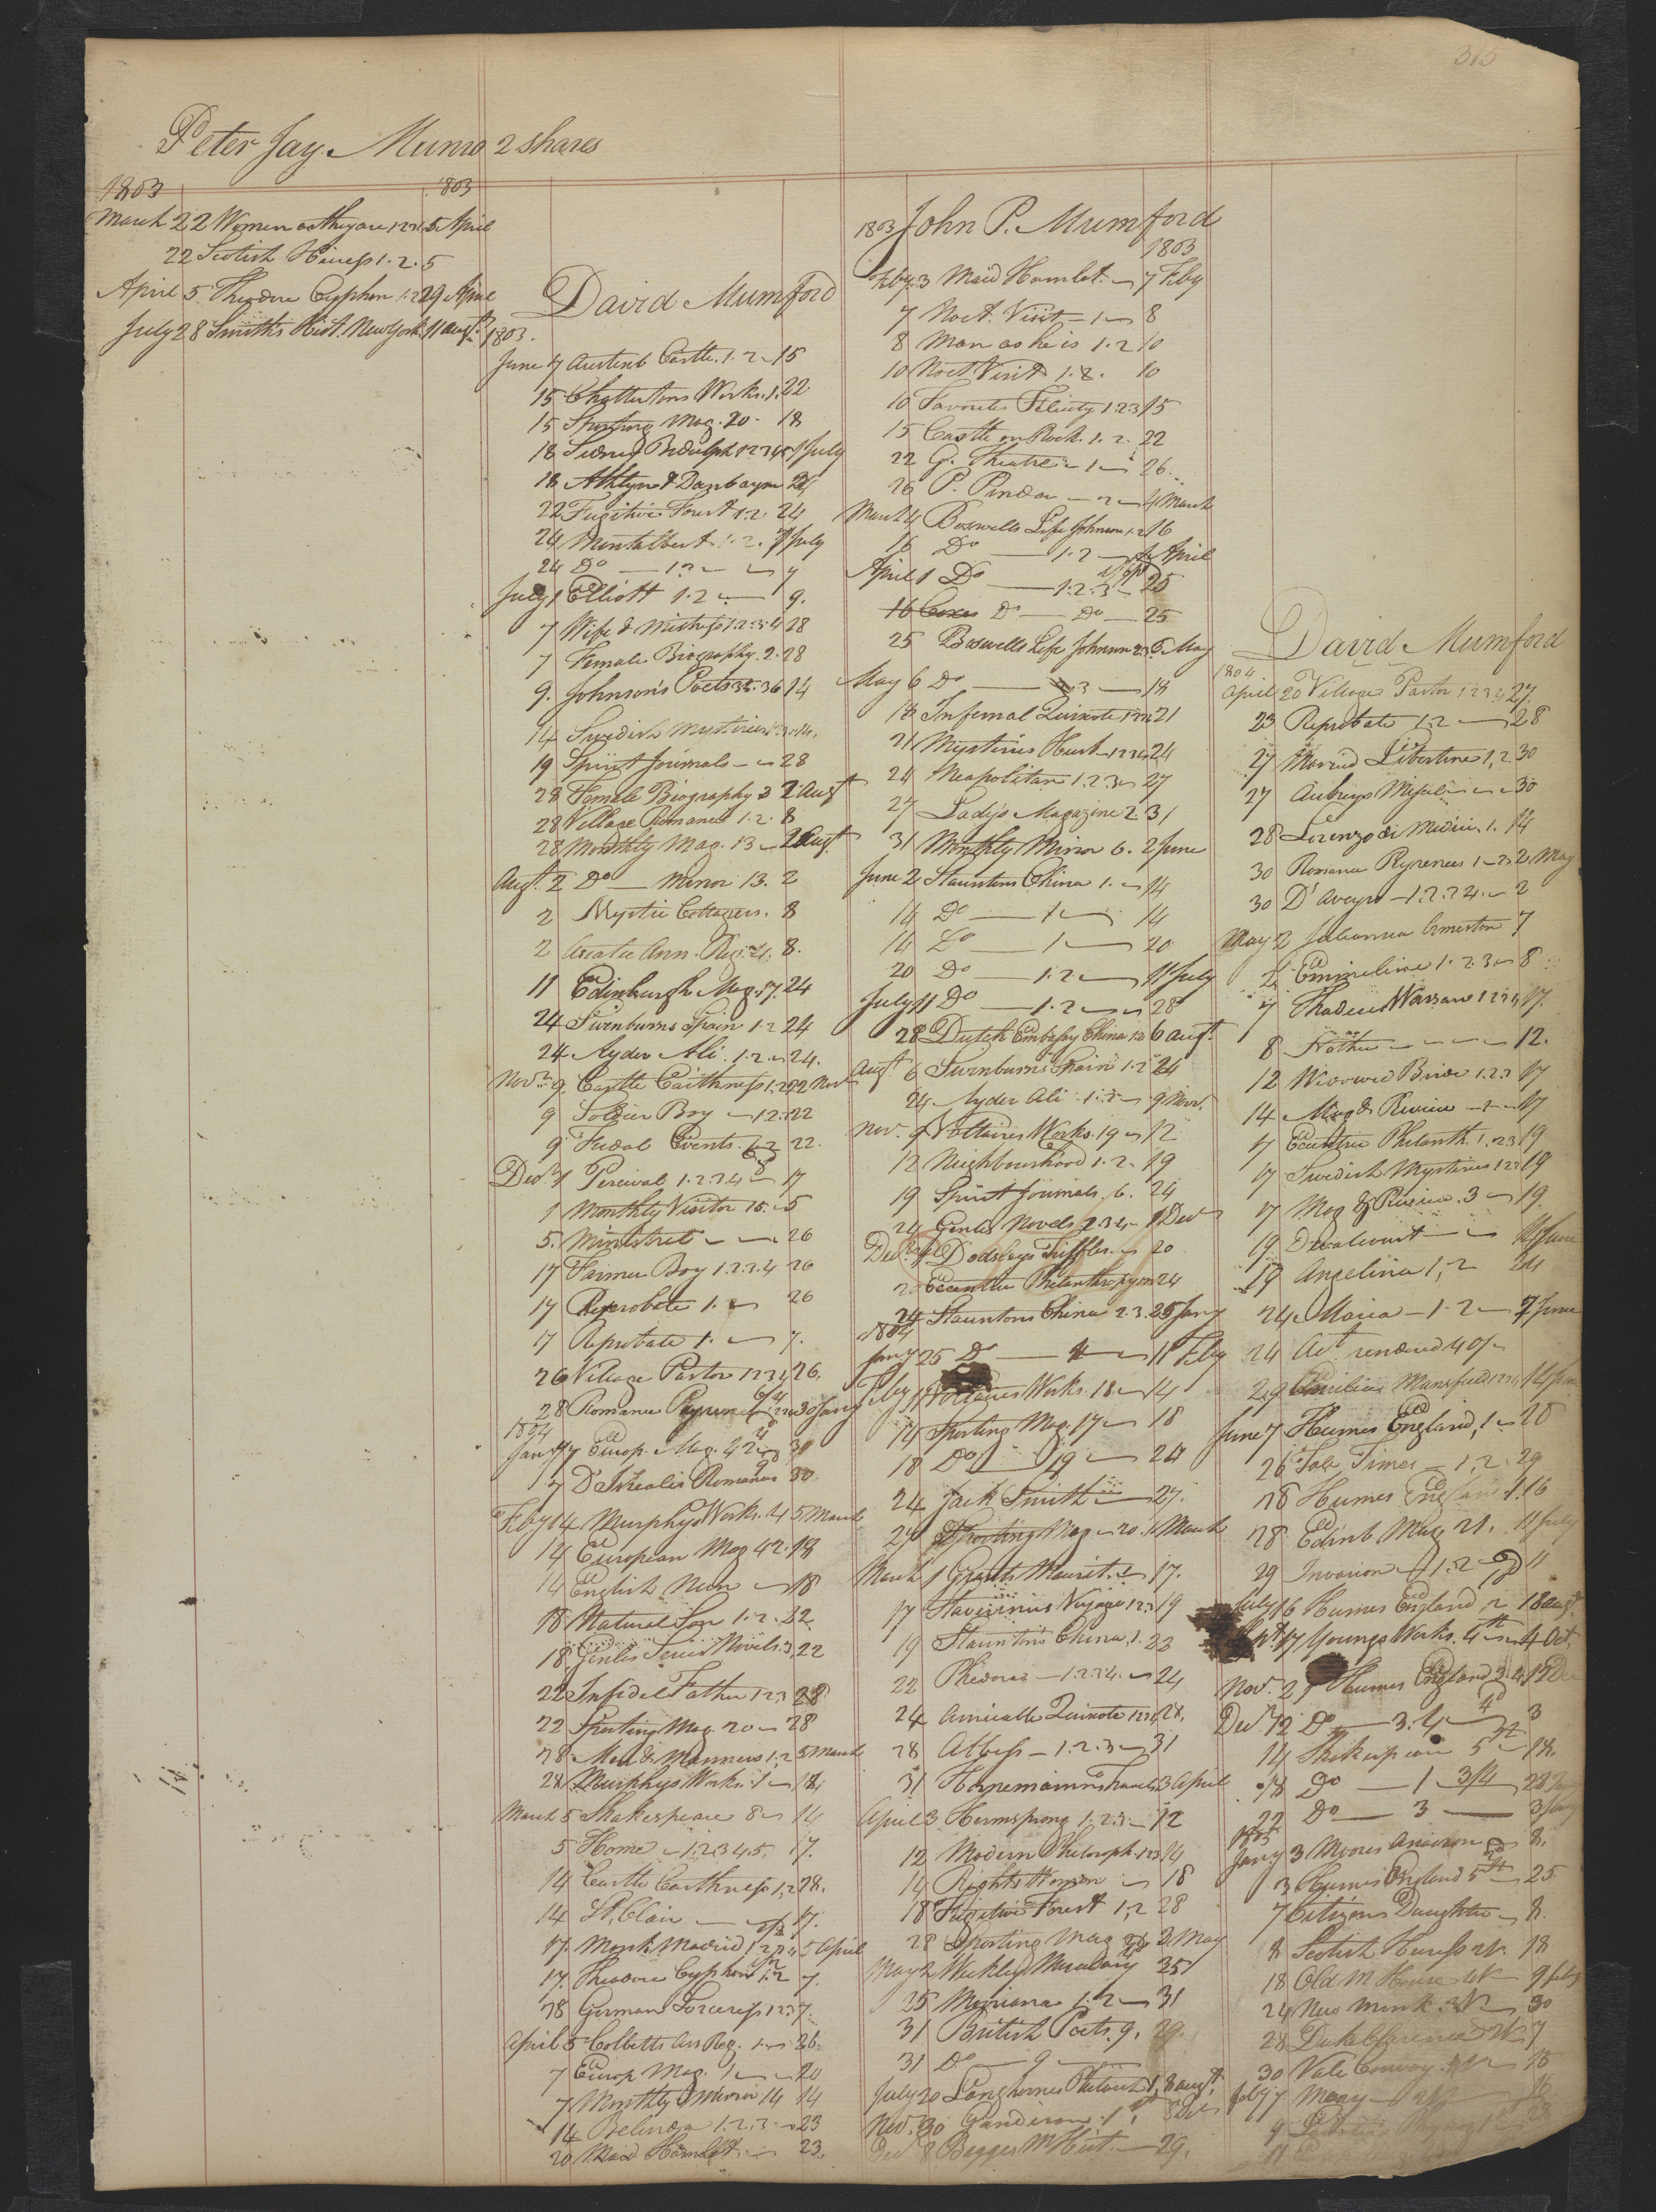 315
Peter Jay Munro 2 shares
1803 1803
March 22 Women as they are 1.2.3.4 5 April
22 Scotish Heiress 1.2. 5
April 5 Theodore Cyphon 1.2 29 April
July 28 Smith's Hist. New York 11 Augt
David Mumford
1803.
June 7 Austenb Castle. 1.2 15
15 Chattertons Works. 1. 22
15 Sporting Mag. 20 - 18
18 Sidney Bidulph 1 July
18 Athlyn & Dunbayne 24
22 Fugitive Forest 1.2 24
24 Montalbert 1.2. 7 July
24 Do — 1.2 7
July 1 Elliott 1.2 — 9.
7 Wife & Mistress 1.2.3.4 28
7 Female Biography. 2. 28
9. Johnson's Poets 35. 36 14
14 Swedish Mysteries 14.
19 Spirit Journals — 28
28 Female Biography 3 2 Augt
28 Village Romance 1.2. 8
28 Monthly Mag. 13 2 Augt
Augt. 2 Do — Mirror 13. 2
2 Mystic Cottagers. 8
2 Asiatic Ann. Reg. 8.
11 Edinburgh Mag. 17. 24
24 Swinburns Spain 1.2 24
24 Ayder Ali. 1.2. 24.
Novr. 9. Castle Caithness 1.2 22 Novr
9 Soldier Boy — 1.2.3 22
9 Fudal Events. 1.2 22.
Decr 1 Percival 1.2.3.4 17
1 Monthly Visitor 15. 5
5. Minstrel — 26
17 Farmer Boy 1.2.3.4 26
17 Reprobate 1. 26
17 Reprobate 1. — 7.
26 Village Pastor 1.2.3.4 26.
28 Romance Pyrenees 30 Jany
1804
Jany 7 Europ. Mag. 42 30
7 D'Israelis Romances 30
Feby 14 Murphys Works. 4 5 March
14 European Mag 42. 18
14 English Nun — 18
18 Natural Son 1.2. 22
18 Genlis Novels. 3. 22
22 Infidel Father 1.2.3 28
22 Sporting Mag. 20 — 28
28 Men & Manners 1.2 5 March
28 Murphys Works. 1 — 14
March 5 Shakespeare 8 14
5 Home — 1.2.3.4.5. 17.
14 Castle Caithness 1.2 28.
14 St. Clair — 17.
17. Monk Madrid 5 April
17. Theodore Cyphon 1.2 7.
28 German Sorceress 1.2.3 7.
April 5 Cobbetts An Reg. 1 26.
7 Europ Mag. 1 — 20
7 Monthly Mirror 14 14
14 Belinda 1.2.3 23
20 Maid Hamlet — 23.
1803 John P. Mumford
1803
Feby. 3 Maid Hamlet — 7 Feby
7 Noct. Visit — 1 — 8
8 Man as he is 1.2 10
10 Noct Visit 1.2. 10
10 Favorites Felicity 1.2.3 15
15 Castle on Rock. 1.2. 22
22 G. Theatre — 1 — 26.
26 P. Pindar — 2 — 4 March
March 4 Boswells Life Johnson 1.2 16
16 Do — 1.2 — 1 April
April 1 Do — 1.2.3 25
16 Do — Do — 25
25 Boswells Life Johnson 2.3 6 May
May 6 Do — 3 — 18
18 Infernal Quixote 21
21 Mysterious Hush 1.2.3.4 24
24 Neapolitan 1.2.3 27
27 Lady's Magazine 2. 31
31 Monthly Mirror 6. 2 June
June 2 Stauntons China 1. 14
14 Do — 1 — 14
14 Do — 1 — 20
20 Do — 1.2 — 11 July
July 11 Do — 1.2 — 28
28 Dutch Embassy China 1.2 6 Augt.
Augt 6 Swinburns Spain 1.2 24
24 Ayder Ali 1.2 9 Novr.
Nov. 9 Voltaires Works. 19 12
12 Neighbourhood 1.2. 19
19 Spirit Journals. 6. 24
24 Genlis Novels 2.3.4 1 Decr
Decr 1 Dodsleys Triffles 20
20 Eccentric Philanthropy 24
24 Stauntons China 2.3. 25 Jany
1804
Jany 25 Do — 11 Feby
Feby 11 Voltaires Works. 18 14
14 Sporting Mag. 17 18
18 Do — 19 24
24 Jack Smith — 27.
27 Sporting Mag 20. 1 March
March 1 Grants Maurit. 17.
17 Stavorinus Voyage 1.2.3 19
19 Stauntons China. 1. 22
22 Phedora — 1.2.3.4. 24
24 Amicable Quixote 1.2.3.4 28.
28 Abbess — 1.2.3 — 31
31 Hornemanns Travels 3 April
April 3 Hermsprong 1.2.3 — 12
12 Modern Philosoph. 1.2.3 14
14 Rights Woman — 18
18 Fugitive Forest 1.2 28
28 Sporting Mag 2 May
May 2 Weekly 25
25 Miriana 1.2 — 31
31 British Poets. 9. 29
31 Do — 9
July 20 Langhornes Plutarch 1. 8 Augt.
Nov. 30 Ganderson. 1.
Decr 8 Beggs McHist. — 29.
David Mumford
1804
April 20 Village Pastor 1.2.3.4 27.
23 Reprobate 1.2 — 28
27 Married Libertine 1.2 30
27 Aubreys Miscel. 30
28 Lorenzo di Medici. 1. 14
30 Romance Pyrenees 2 May
30 D'Aveyro — 1.2.3.4. 2
May 2 Julianna Ormeston 7
2 Emmeline 1.2.3 8
7 Thadeus Warsaw 1.2.3.4 17.
8 — 12.
12 Wierwolf Bride 1.2.3 17
14 Mag & Review — 17
17 Eccentric Philanth. 1.2.3 19
17 Swedish Mysteries 1.2.3 19
17 Mag & Review. 3 19.
19 Dwalcourt — 14 June
19 Angelina 1.2 24
24 Maria — 1.2 — 7 June
24 Act rendered 40/
29 Emilius Mansfield 14 June
June 7 Humes England, 1 28
26 Tale Times — 1.2. 29
28 Humes England 1. 16
28 Edinb. Mag 21. 11 July
29 Invasion — 1.2 — 11
July 16 Humes England, 2 18 Augt.
Sept 17 Youngs Works. 4 Oct.
Nov. 27 Humes England 3.4 12 Dec
Decr 12 Do — 3.4 — 3
14 Shakespeare 5 18.
18 Do — 1 3/4 28 Jany
22 Do — 3 — 3 Jany
1805
Jany 3 Moores Anacreon 8.
3 Humes England 5 — 25
7 Citizens Daughter 8.
8 Scotish Heiress 2V. 18
18 Old M House 4V 9 Feby
24 New Monk. 3V 30
28 Duke Clarence 7
30 Vale Conway 15
Feby 7 Mary